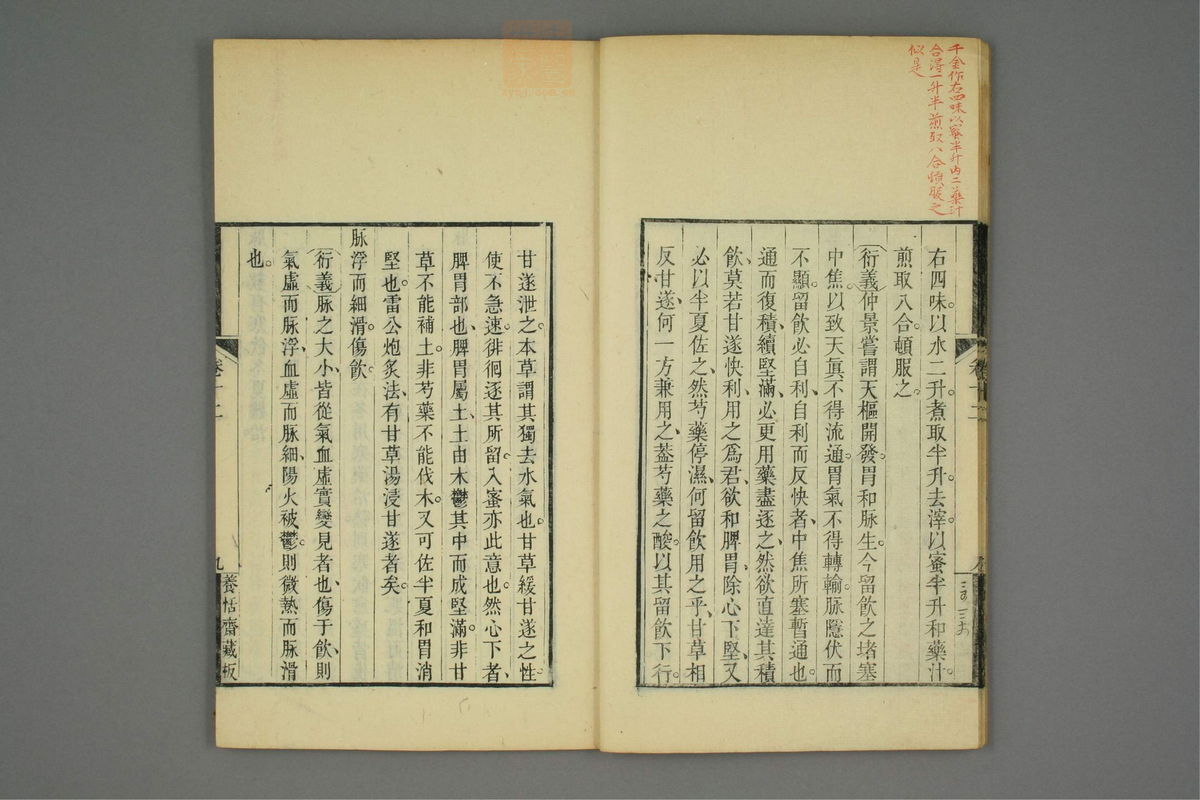 千金作右四味以蜜半升内二藥汁
合得一升半煎取八合頓服之
似是
右四味。以水二升。煮取半升。去滓。以蜜半升。和藥汁。
煎取八合。頓服之。
(衍義)仲景嘗謂天樞開發。胃和脉生。今留飲之堵塞
中焦。以致天眞不得流通。胃氣不得轉輸。脉隱伏而
不顯。留飲必自利、自利而反快者、中焦所塞暫通也。
通而復積、續堅滿、必更用藥盡逐之、然欲直達其積
飲、莫若甘遂快利、用之爲君、欲和脾胃、除心下堅、又
必以半夏佐之、然芍藥停濕、何留飲用之乎、甘草相
反甘遂、何一方兼用之、葢芍藥之酸、以其留飲下行。
甘遂泄之。本草謂其獨去水氣也。甘草緩甘遂之性。
使不急速。徘徊逐其所留。入蜜亦此意也。然心下者、
脾胃部也、脾胃屬土、土由木鬱其中而成堅滿。非甘
草不能補土。非芍藥不能伐木。又可佐半夏和胃消
堅也。雷公炮炙法、有甘草湯浸甘遂者矣。
脉浮而細滑。傷飲。
(衍義)脉之大小、皆從氣血虛實變見者也、傷于飲、則
氣虛而脉浮、血虛而脉細、陽火被鬱。則微熱而脉滑
也。
卷十二
九
養恬齋藏板